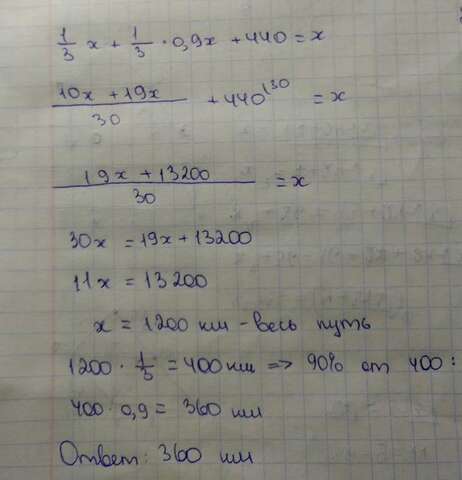 1/3 x + 1/3 · 0,9x + 440 = x
10x + 19x / 30 + 440^(30 = x
19x + 13200 / 30 = x
30x = 19x + 13200
11x = 13200
x = 1200 км - весь путь
1200 · 1/3 = 400 км => 90% от 400 :
400 · 0,9 = 360 км
Ответ: 360 км